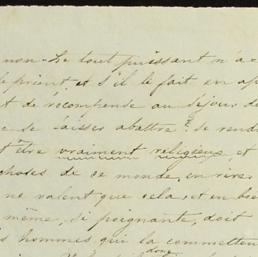 non. Le tout puissant n'a
prient, et s'il le fait en
t de récompense au séjour de
e se laisser abattre? se rend
t être vraiment religieux, et
choses de ce monde, en rire
ne valent que cela et en
même, si poignante, doit
s hommes qui la commettent
donc